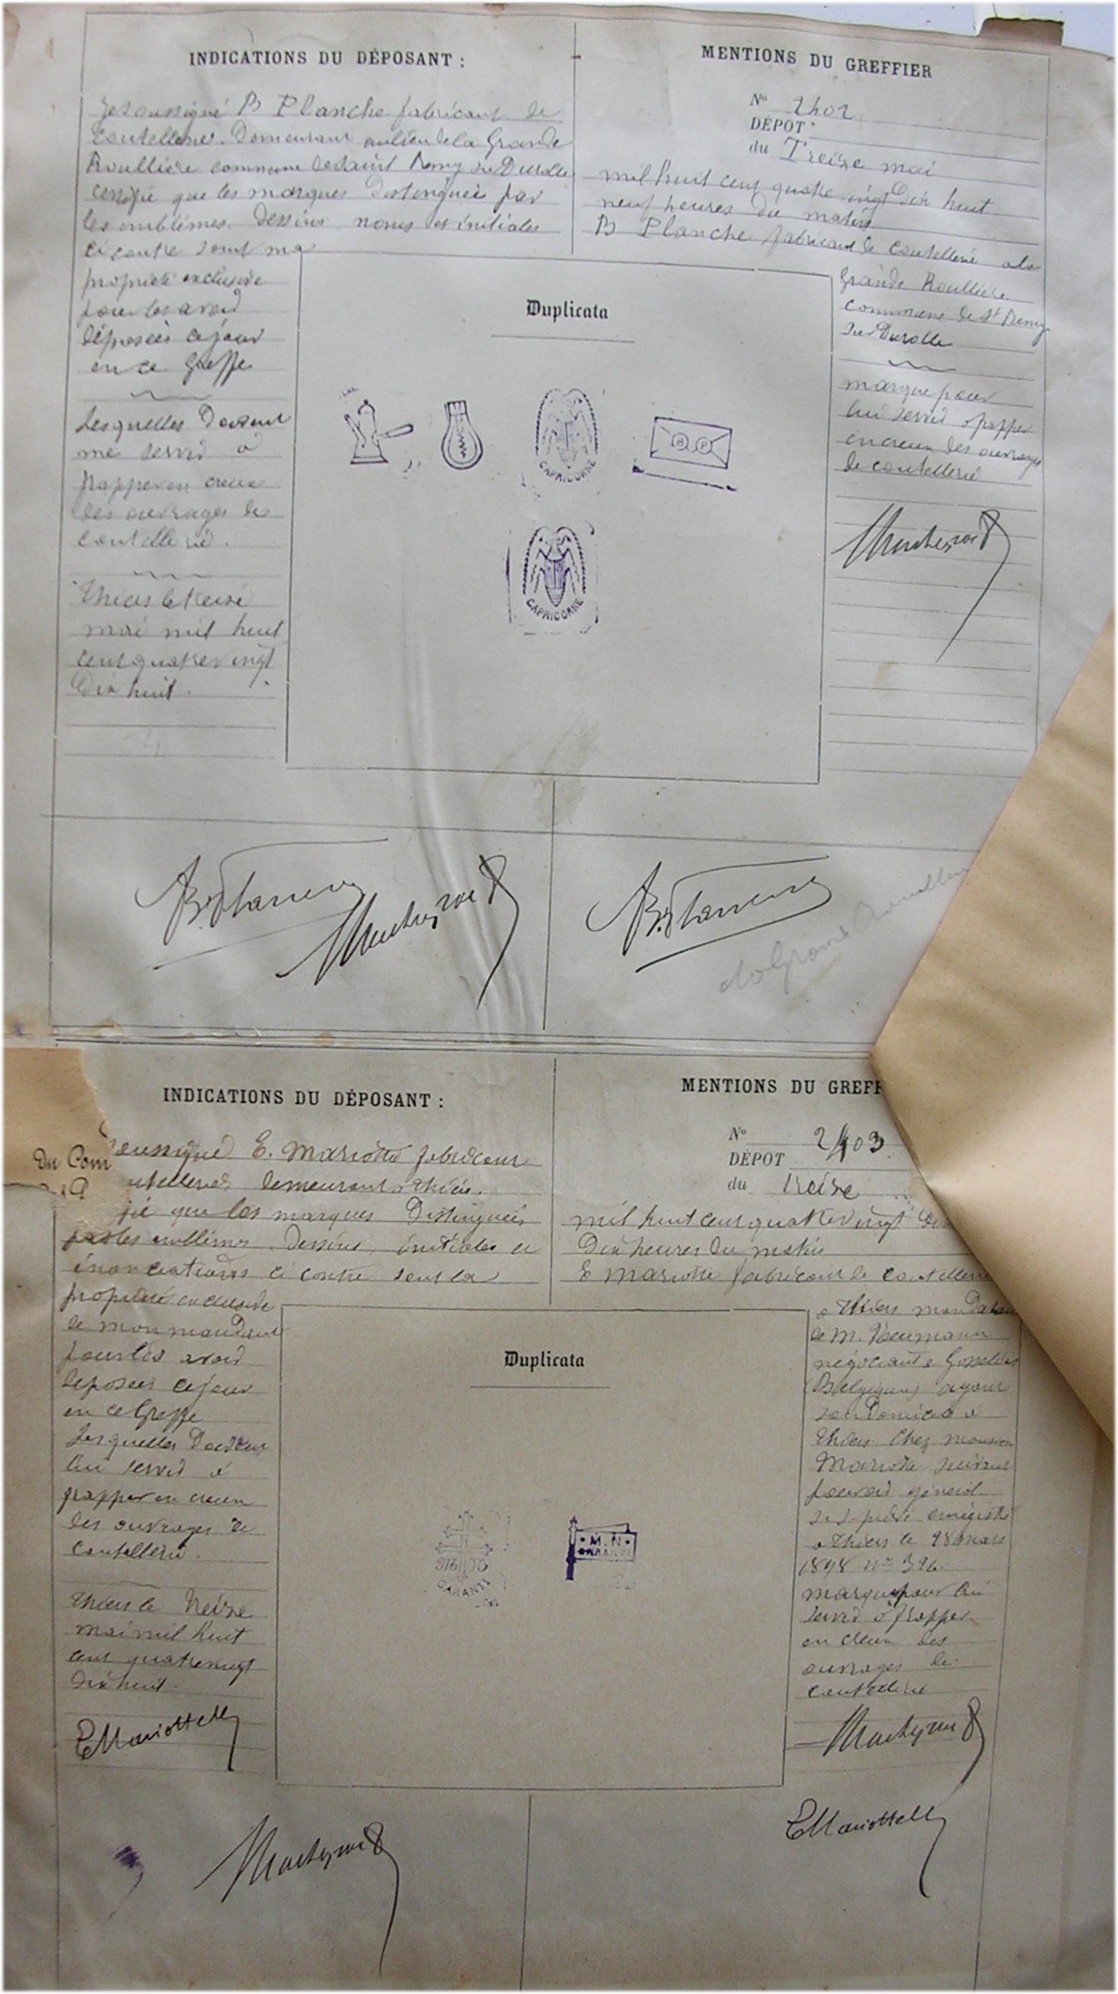 INDICATIONS DU DÉPOSANT :
Je soussigné B Planche fabricant de
coutellerie Demeurant au lieu de la Grande
Roullière commune de Saint Remy sur Durolle
certifie que les marques Distinguées par
les emblèmes, Dessins, noms et initiales
ci contre sont ma
propriété exclusive
pour les avoir
déposées ce jour
en ce Greffe
Lesquelles Doivent
me servir à
frapper en creux
des ouvrages de
coutellerie.
Thiers le treize
mai mil huit
cent quatre vingt
Dix huit.
MENTIONS DU GREFFIER
N°
DÉPOT
du Treize mai
mil huit cent quatre vingt Dix huit
neuf heures du matin
B Planche fabricant de coutellerie a la
Grande Roullière
commune de St Remy
sur Durolle
marque pour
lui servir à frapper
en creux des ouvrages
de coutellerie
Duplicata
CAPRICORNE
B P
CAPRICORNE
INDICATIONS DU DÉPOSANT :
Du Com
soussigné E. Mariotte fabricant
coutellerie demeurant à Thiers
que les marques Distinguées
par les emblèmes, Dessins, initiales et
énonciations ci contre sont la
propriété exclusive
de mon mandant
pour les avoir
déposées ce jour
en ce Greffe
Lesquelles Doivent
lui servir à
frapper en creux
des ouvrages de
coutellerie.
Thiers le treize
mai mil huit
cent quatre vingt
Dix huit.
E Mariotte
MENTIONS DU GREFF
N° 2403
DÉPOT
du treize
mil huit cent quatre vingt
Dix heures du matin
E Mariotte fabricant de coutellerie
à Thiers mandataire
de M.
négociant à Gosselies
(Belgique) ayant
son Domicile à
Thiers chez monsieur
Mariotte suivant
pouvoir général
enregistré
à Thiers le 28 mars
1898 n° 396
marque pour lui
servir à frapper
en creux des
ouvrages de
coutellerie
Duplicata
GARANTI
M. N
GARANTI
E Mariotte